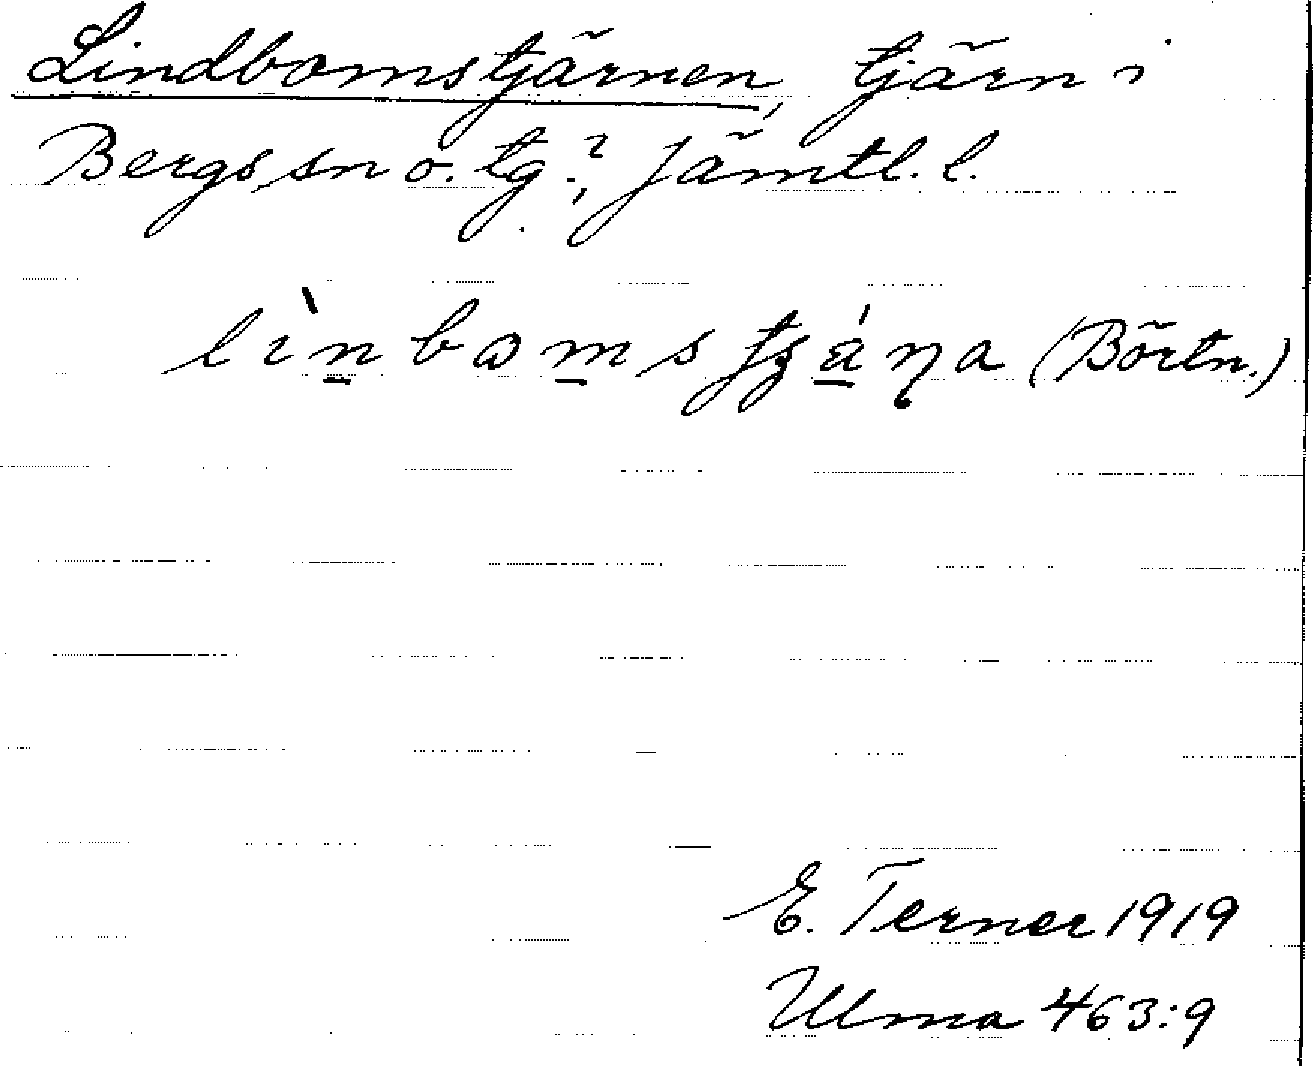 Lindbomstjärnen, tjärn i
Bergs sn o. tg.?, Jämtl. l.
(Börtn.)
E. Terner 1919
Ulma 463:9